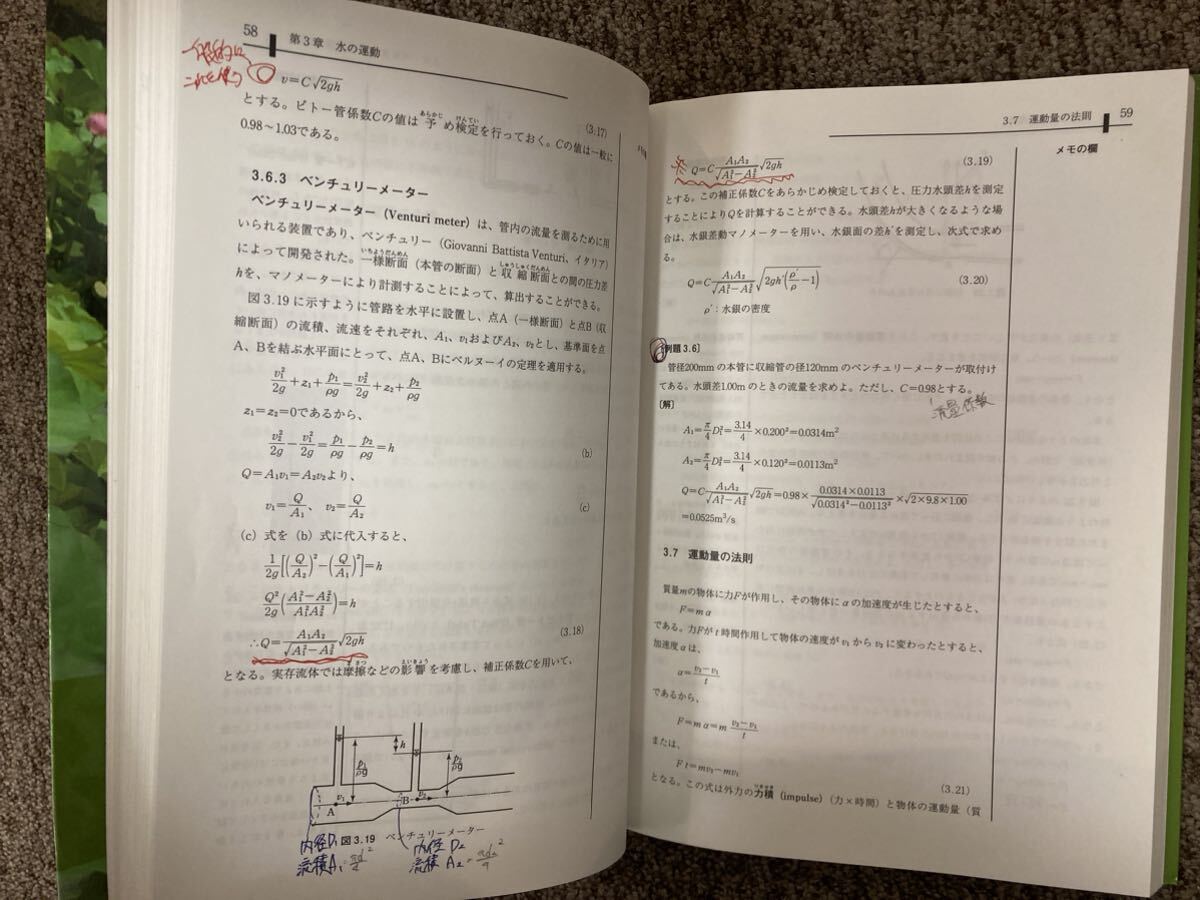 58
第3章 水の運動
一般的に
これを使う
v=C√2gh
(3.17)
とする。ピトー管係数Cの値は予め検定を行っておく。Cの値は一般に
0.98～1.03である。
3.6.3 ベンチュリーメーター
ベンチュリーメーター(Venturi meter)は、管内の流量を測るために用
いられる装置であり、ベンチュリー(Giovanni Battista Venturi, イタリア)
によって開発された。一様断面(本管の断面)と収縮断面との間の圧力差
hを、マノメーターにより計測することによって、算出することができる。
図3.19に示すように管路を水平に設置し、点A(一様断面)と点B(収
縮断面)の流積、流速をそれぞれ、A₁、v₁およびA₂、v₂とし、基準面を点
A、Bを結ぶ水平面にとって、点A、Bにベルヌーイの定理を適用する。
v₁²/2g+z₁+p₁/ρg=v₂²/2g+z₂+p₂/ρg
z₁=z₂=0であるから、
v₂²/2g−v₁²/2g=p₁/ρg−p₂/ρg=h (b)
Q=A₁v₁=A₂v₂より、
v₁=Q/A₁、 v₂=Q/A₂ (c)
(c)式を(b)式に代入すると、
1/2g[(Q/A₂)²−(Q/A₁)²]=h
Q²/2g(A₁²−A₂²/A₁²A₂²)=h
∴Q=A₁A₂/√A₁²−A₂² √2gh (3.18)
となる。実存流体では摩擦などの影響を考慮し、補正係数Cを用いて、
h
p₁/ρg
p₂/ρg
A v₁ B v₂
図3.19 ベンチュリーメーター
内径D₁
流積A₁=πd²/4
内径 D₂
流積 A₂=πd₂²/4
3.7 運動量の法則 59
メモの欄
Q=C A₁A₂/√A₁²−A₂² √2gh (3.19)
とする。この補正係数Cをあらかじめ検定しておくと、圧力水頭差hを測定
することによりQを計算することができる。水頭差hが大きくなるような場
合は、水銀差動マノメーターを用い、水銀面の差h′を測定し、次式で求め
る。
Q=C A₁A₂/√A₁²−A₂² √2gh′(ρ′/ρ−1) (3.20)
ρ′:水銀の密度
[例題3.6]
管径200mmの本管に収縮管の径120mmのベンチュリーメーターが取付け
てある。水頭差1.00mのときの流量を求めよ。ただし、C=0.98とする。
流量係数
[解]
A₁=π/4 D₁²=3.14/4×0.200²=0.0314m²
A₂=π/4 D₂²=3.14/4×0.120²=0.0113m²
Q=C A₁A₂/√A₁²−A₂² √2gh=0.98×0.0314×0.0113/√0.0314²−0.0113²×√2×9.8×1.00
=0.0525m³/s
3.7 運動量の法則
質量mの物体に力Fが作用し、その物体にαの加速度が生じたとすると、
F=mα
である。力Fがt時間作用して物体の速度がv₁からv₂に変わったとすると、
加速度αは、
α=v₂−v₁/t
であるから、
F=mα=m v₂−v₁/t
または、
Ft=mv₂−mv₁ (3.21)
となる。この式は外力の力積(impulse)(力×時間)と物体の運動量(質